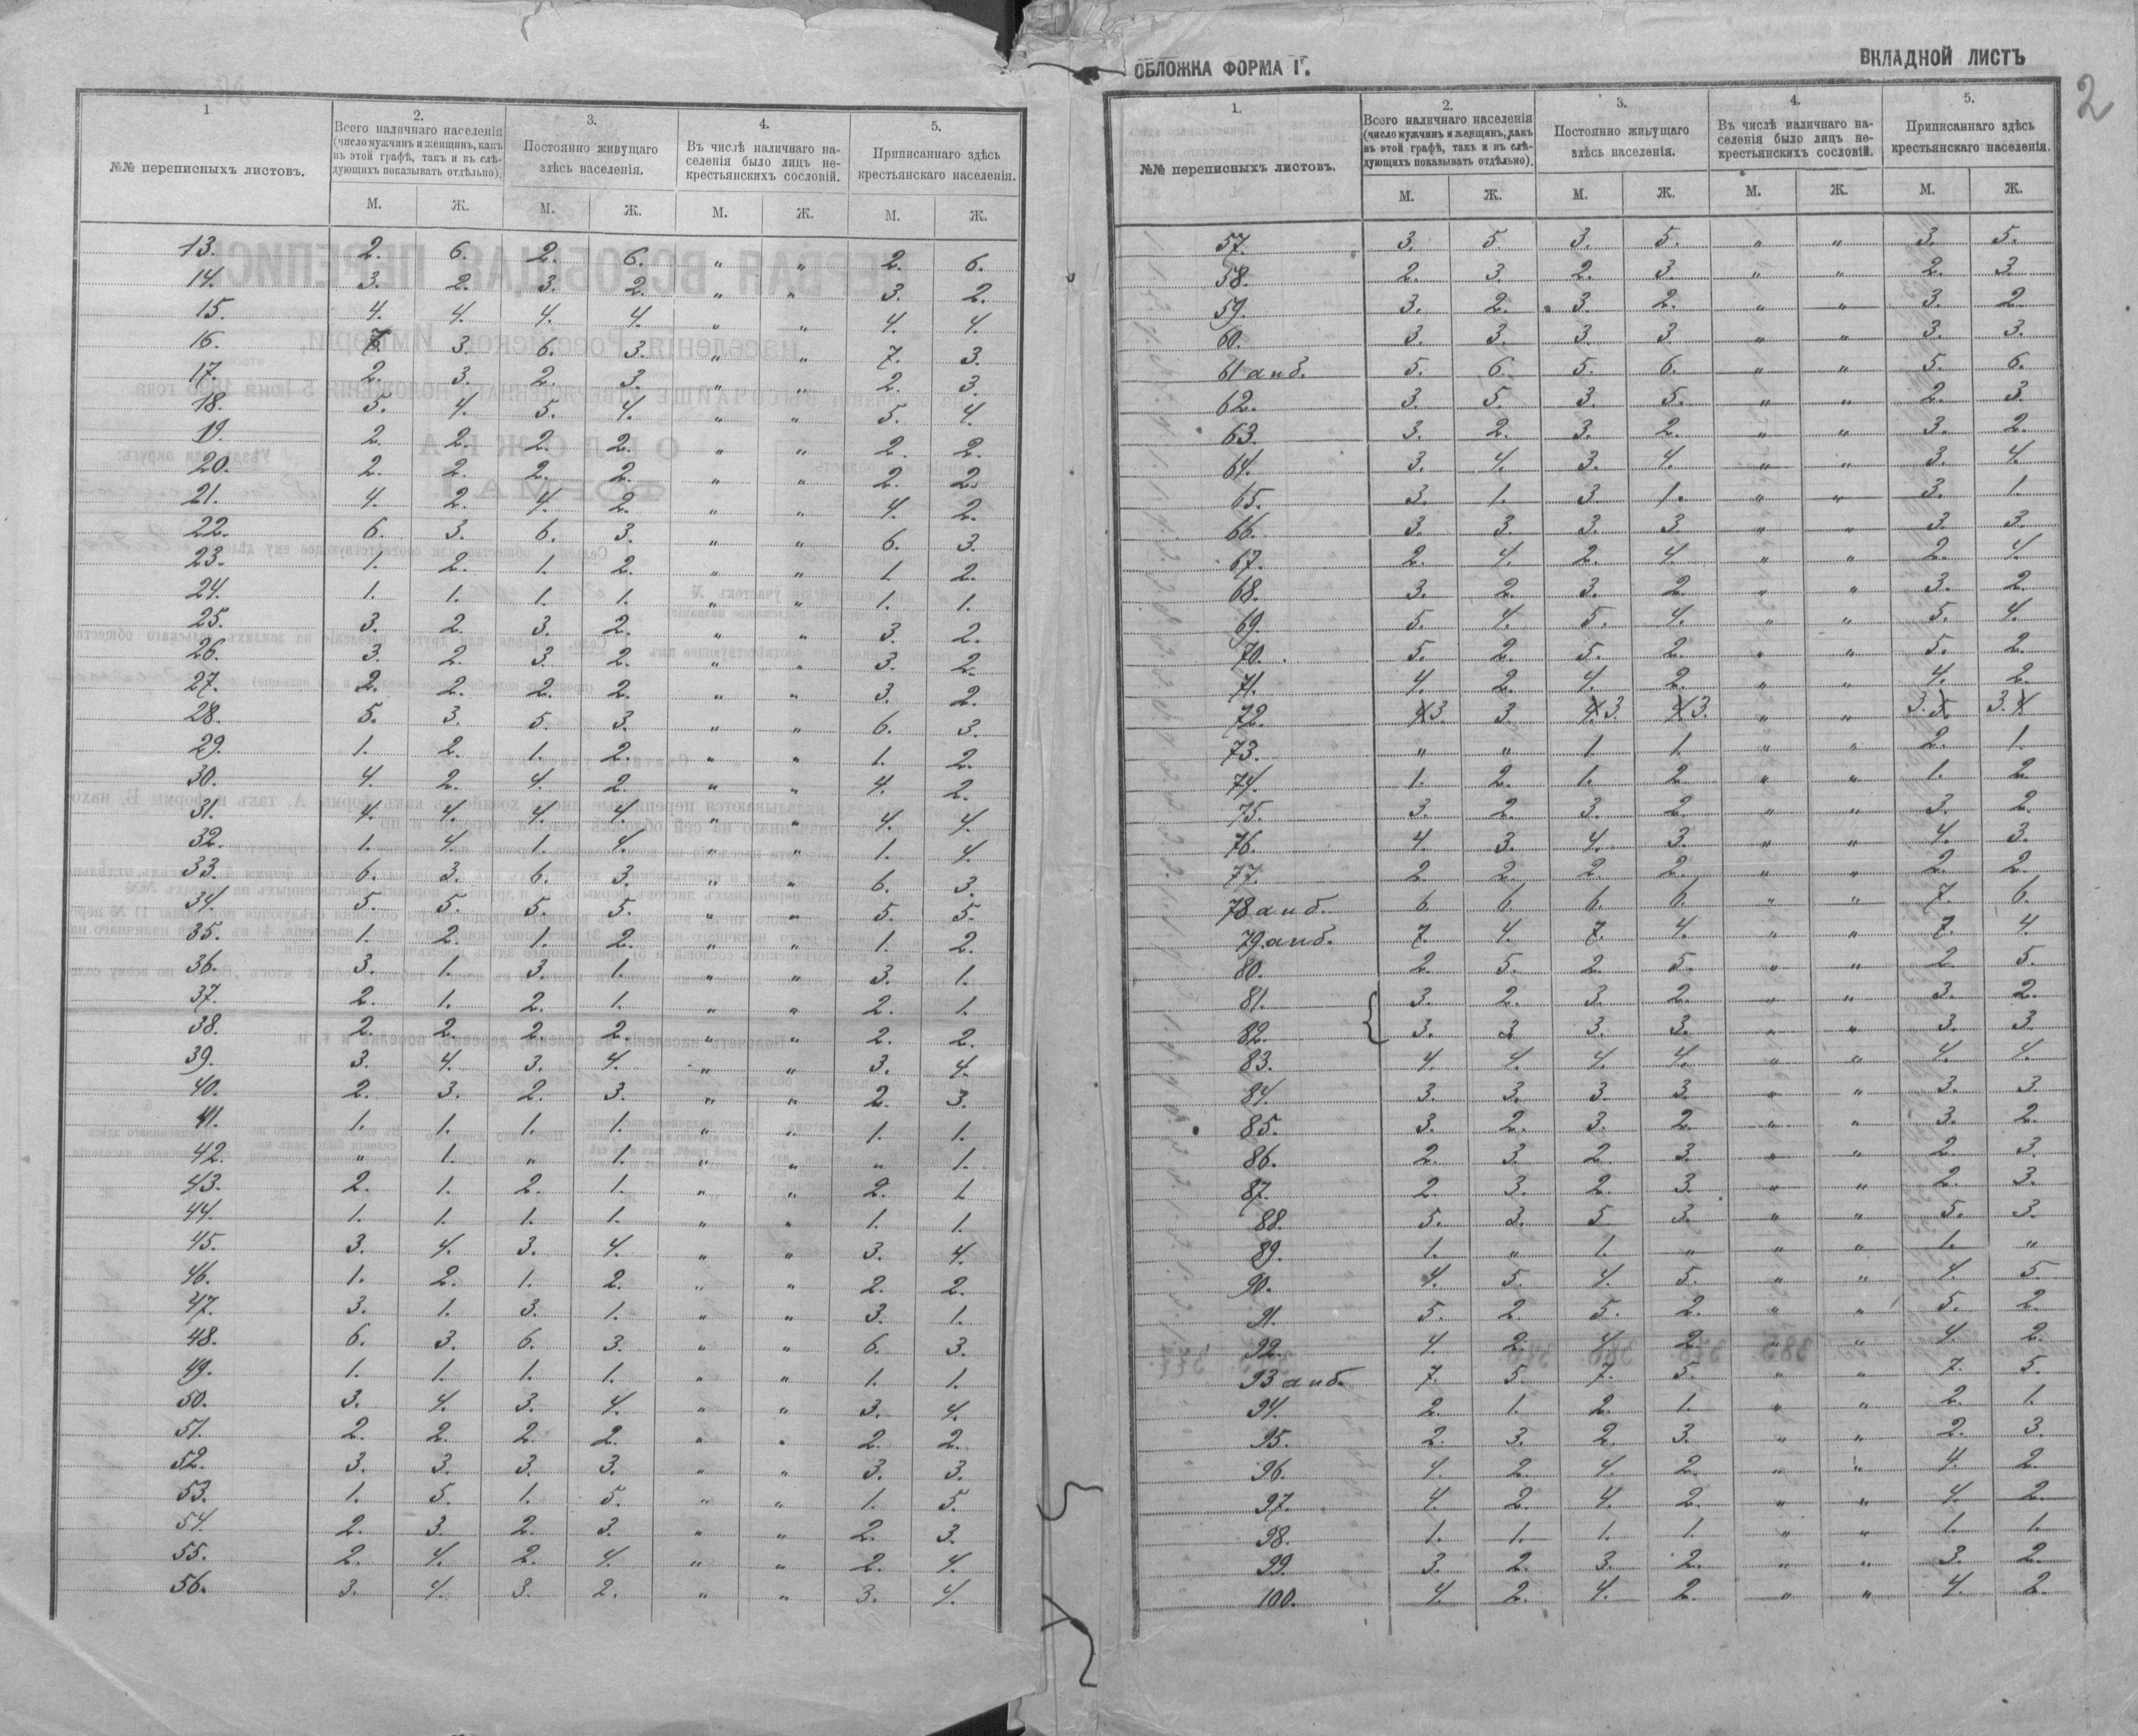 1.
2.
3.
4.
5.
№№ переписныхъ листовъ.
Всего наличнаго населенія (число мужчинъ и женщинъ, какъ въ этой графѣ, такъ и въ слѣдующихъ показывать отдѣльно).
Постоянно живущаго здѣсь населенія.
Въ числѣ наличнаго населенія было лицъ некрестьянскихъ сословій.
Приписаннаго здѣсь крестьянскаго населенія.
М. Ж. М. Ж. М. Ж. М. Ж.
13. 2. 6. 2. 6. " " 2. 6.
14. 3. 2. 3. 2. " " 3. 2.
15. 4. 4. 4. 4. " " 4. 4.
16. 3. 6. 3. " " 7. 3.
17. 2. 3. 2. 3. " " 2. 3.
18. 5. 4. 5. 4. " " 5. 4.
19. 2. 2. 2. 2. " " 2. 2.
20. 2. 2. 2. 2. " " 2. 2.
21. 4. 2. 4. 2. " " 4. 2.
22. 6. 3. 6. 3. " " 6. 3.
23. 1. 2. 1. 2. " " 1. 2.
24. 1. 1. 1. 1. " " 1. 1.
25. 3. 2. 3. 2. " " 3. 2.
26. 3. 2. 3. 2. " " 3. 2.
27. 2. 2. 2. 2. " " 3. 2.
28. 5. 3. 5. 3. " " 6. 3.
29. 1. 2. 1. 2. " " 1. 2.
30. 4. 2. 4. 2. " " 4. 2.
31. 4. 4. 4. 4. " " 4. 4.
32. 1. 4. 1. 4. " " 1. 4.
33. 6. 3. 6. 3. " " 6. 3.
34. 5. 5. 5. 5. " " 5. 5.
35. 1. 2. 1. 2. " " 1. 2.
36. 3. 1. 3. 1. " " 3. 1.
37. 2. 1. 2. 1. " " 2. 1.
38. 2. 2. 2. 2. " " 2. 2.
39. 3. 4. 3. 4. " " 3. 4.
40. 2. 3. 2. 3. " " 2. 3.
41. 1. 1. 1. 1. " " 1. 1.
42. " 1. " 1. " " " 1.
43. 2. 1. 2. 1. " " 2. 1
44. 1. 1. 1. 1. " " 1. 1.
45. 3. 4. 3. 4. " " 3. 4.
46. 1. 2. 1. 2. " " 2. 2.
47. 3. 1. 3. 1. " " 3. 1.
48. 6. 3. 6. 3. " " 6. 3.
49. 1. 1. 1. 1. " " 1. 1.
50. 3. 4. 3. 4. " " 3. 4.
51. 2. 2. 2. 2. " " 2. 2.
52. 3. 3. 3. 3. " " 3. 3.
53. 1. 5. 1. 5. " " 1. 5.
54. 2. 3. 2. 3. " " 2. 3.
55. 2. 4. 2. 4. " " 2. 4.
56. 3. 4. 3. 2. " " 3. 4.
ОБЛОЖКА ФОРМА Г.
ВКЛАДНОЙ ЛИСТЪ
2
1.
2.
3.
4.
5.
№№ переписныхъ листовъ.
Всего наличнаго населенія (число мужчинъ и женщинъ, какъ въ этой графѣ, такъ и въ слѣдующихъ показывать отдѣльно).
Постоянно живущаго здѣсь населенія.
Въ числѣ наличнаго населенія было лицъ некрестьянскихъ сословій.
Приписаннаго здѣсь крестьянскаго населенія.
М. Ж. М. Ж. М. Ж. М. Ж.
57. 3. 5. 3. 5. " " 3. 5.
58. 2. 3. 2. 3. " " 2. 3.
59. 3. 2. 3. 2. " " 3. 2
60. 3. 3. 3. 3 " " 3. 3.
61 а и б. 5. 6. 5. 6. " " 5. 6.
62. 3. 5. 3. 5. " " 2. 3.
63. 3. 2. 3. 2. " " 3. 2.
64. 3. 4. 3. 4. " " 3. 4.
65. 3. 1. 3. 1. " " 3. 1.
66. 3. 3. 3. 3. " " 3. 3.
67. 2. 4. 2. 4. " " 2. 4.
68. 3. 2. 3. 2. " " 3. 2.
69. 5. 4. 5. 4. " " 5. 4.
70. 5. 2. 5. 2. " " 5. 2.
71. 4. 2. 4. 2. " " 4. 2.
72. 3. 3. 3. 3. " " 3. 3.
73. " " 1. 1. " " 2. 1.
74. 1. 2. 1. 2. " " 1. 2.
75. 3. 2. 3. 2. " " 3. 2.
76. 4. 3. 4. 3. " " 4. 3.
77. 2. 2. 2. 2. " " 2. 2.
78 а и б. 6. 6. 6. 6. " " 7. 6.
79 а и б. 7. 4. 7. 4. " " 7. 4.
80. 2. 5. 2. 5. " " 2. 5.
81. { 3. 2. 3. 2. " " 3. 2.
82. 3. 3 3. 3. " " 3. 3.
83. 4. 4. 4. 4. " " 4. 4.
84. 3. 3. 3. 3. " " 3. 3.
85. 3. 2. 3. 2. " " 3. 2.
86. 2. 3. 2. 3. " " 2. 3.
87. 2. 3. 2. 3. " " 2. 3.
88. 5. 3. 5. 3. " " 5. 3.
89. 1. " 1. " " " 1. "
90. 4. 5. 4. 5. " " 4. 5.
91. 5. 2. 5. 2. " " 5. 2.
92. 4. 2. 4. 2. " " 4. 2.
93 а и б. 7. 5. 7. 5. " " 7. 5.
94. 2. 1. 2. 1. " " 2. 1.
95. 2. 3. 2. 3. " " 2. 3.
96. 4. 2. 4. 2. " " 4. 2.
97. 4. 2. 4. 2. " " 4. 2.
98. 1. 1. 1. 1. " " 1. 1.
99. 3. 2. 3. 2. " " 3. 2.
100. 4. 2. 4. 2. " " 4. 2.